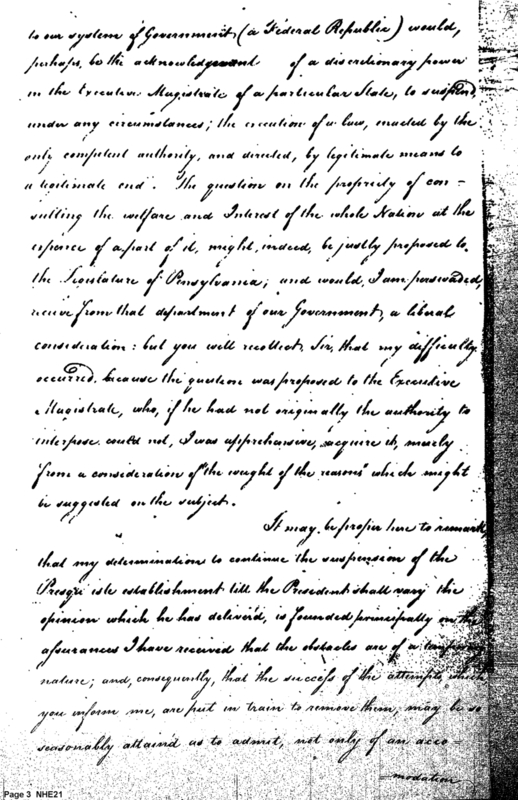 to our system of Government (a Federal Republic) would,
perhaps, be the acknowledgement of a discretionary power
in the Executive Magistrate of a particular State, to suspend,
under any circumstances; the execution of a law, enacted by the
only competent authority, and directed, by legitimate means to
a legitimate end. The question on the propriety of con –
sulting the welfare and Interest of the whole Nation at the
expence of a part of it, might, indeed, be justly proposed to
the Legislature of Pensylvania; and would, I am perswaded,
receive from that department of our Government, a liberal
consideration: but you will recollect, Sir, that my difficulty
occurred, because the question was proposed to the Executive
Magistrate, who, if he had not originally the authority to
interpose could not, I was apprehensive, acquire it, merely
from a consideration of "the weight of the reasons" which might
be suggested on the subject.
It may be proper here to remark,
that my determination to continue the suspension of the
Presqu isle establishment till the President shall vary the
opinion which he has deliver'd, is founded principally on the
assurances I have received that the obstacles are of a temporary
nature; and, consequently, that the success of the attempts, which
you inform me, are put in train to remove them, may be so
seasonably attain'd as to admit, not only of an acco –
– modation
Page 3 NHE21